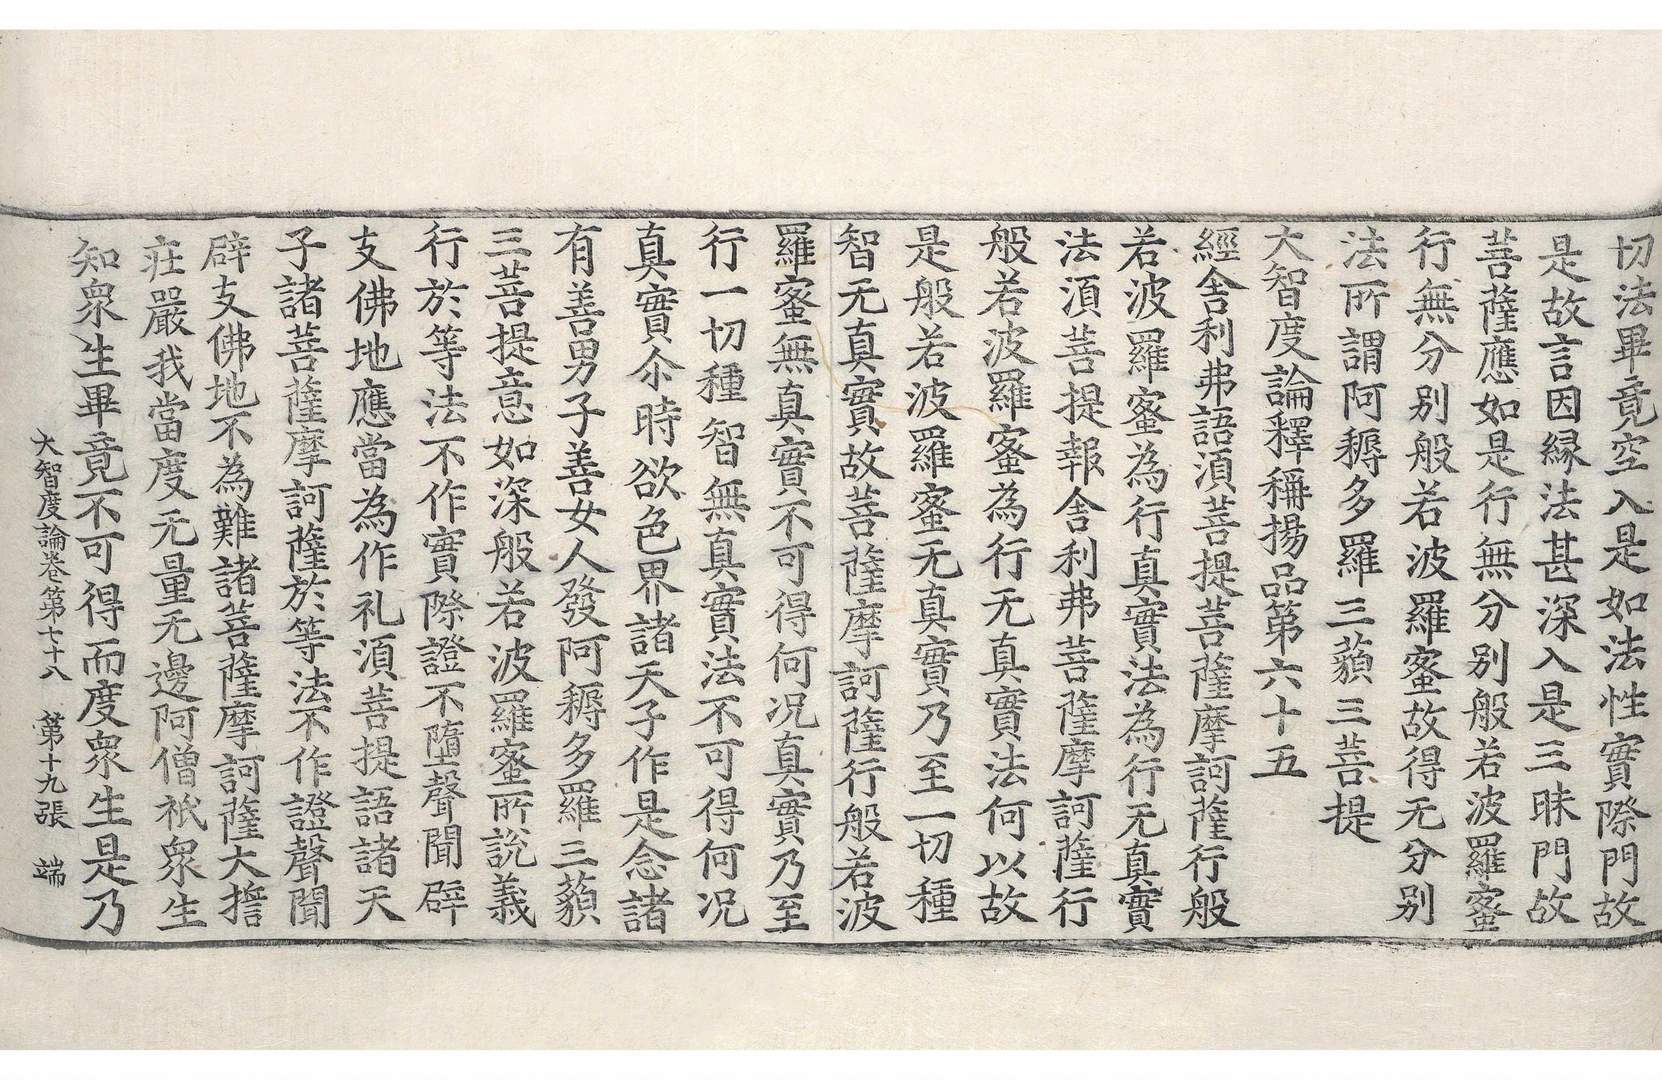 切法畢竟空入是如法性實際門故
是故言因縁法甚深入是三昧門故
菩薩應如是行無分別般若波羅蜜
行無分別般若波羅蜜故得无分別
法所謂阿耨多羅三藐三菩提
大智度論釋稱揚品第六十五
經舍利弗語湏菩提菩薩摩訶薩行般
若波羅蜜為行真實法為行无真實
法湏菩提報舍利弗菩薩摩訶薩行
般若波羅蜜為行无真實法何以故
是般若波羅蜜无真實乃至一切種
智无真實故菩薩摩訶薩行般若波
羅蜜無真實尚不可得何况真實乃至
行一切種智無真實法不可得何况
真實尒時欲色界諸天子作是念諸
有善男子善女人發阿耨多羅三藐
三菩提意如深般若波羅蜜所說義
行於等法不作實際證不墮聲聞辟
支佛地應當為作礼湏菩提語諸天
子諸菩薩摩訶薩於等法不作證聲聞
辟支佛地不為難諸菩薩摩訶薩大擔
莊嚴我當度无量无邊阿僧祇衆生
知衆生畢竟不可得而度衆生是乃
大智度論卷第七十八 第十九張 端